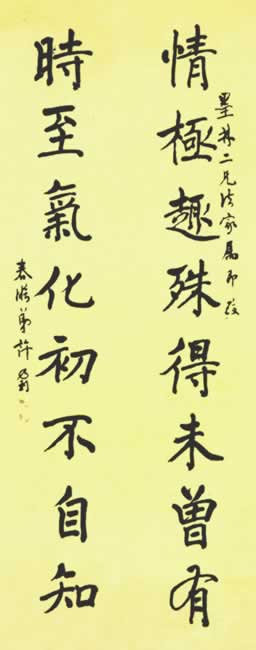 墨林二兄法家屬即政
情極趣殊得未曾有
時至氣化初不自知
弟許